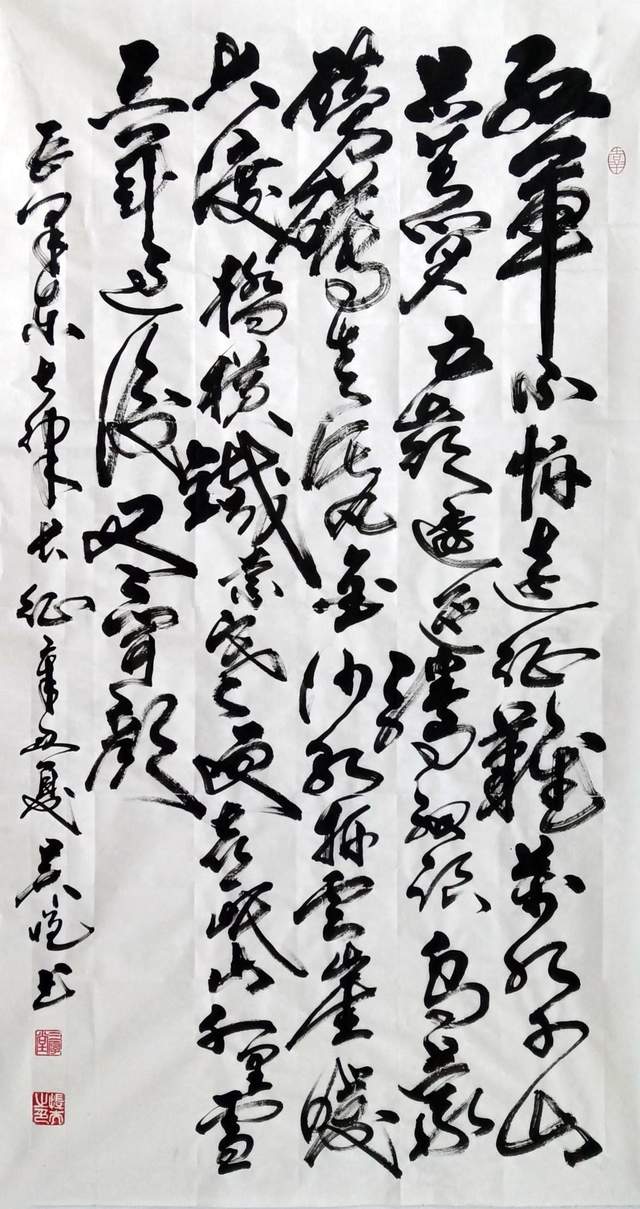 紅軍不怕遠征難萬水千山
只等閑五嶺逶迤騰細浪烏蒙
磅礴走泥丸金沙水拍雲崖暖
大渡橋橫鐵索寒更喜岷山千里雪
三軍過後盡開顏
毛澤東七律長征辛丑夏吳書